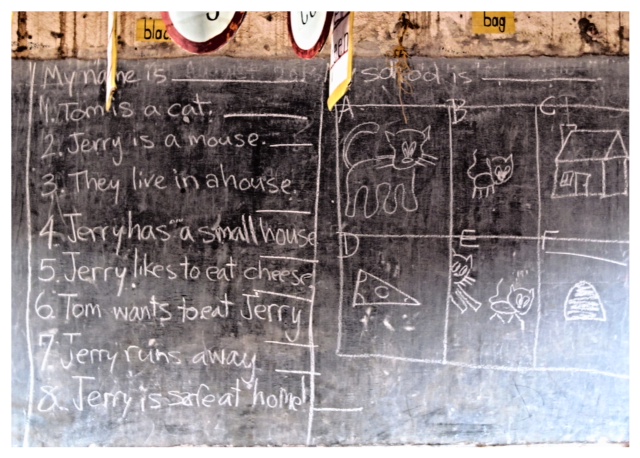 bag
My name is school is
1. Tom is a cat.
2. Jerry is a mouse.
3. They live in a house.
4. Jerry has a small house
5. Jerry likes to eat cheese
6. Tom wants to eat Jerry
7. Jerry runs away
8. Jerry is safe at home!
A B C
D E F